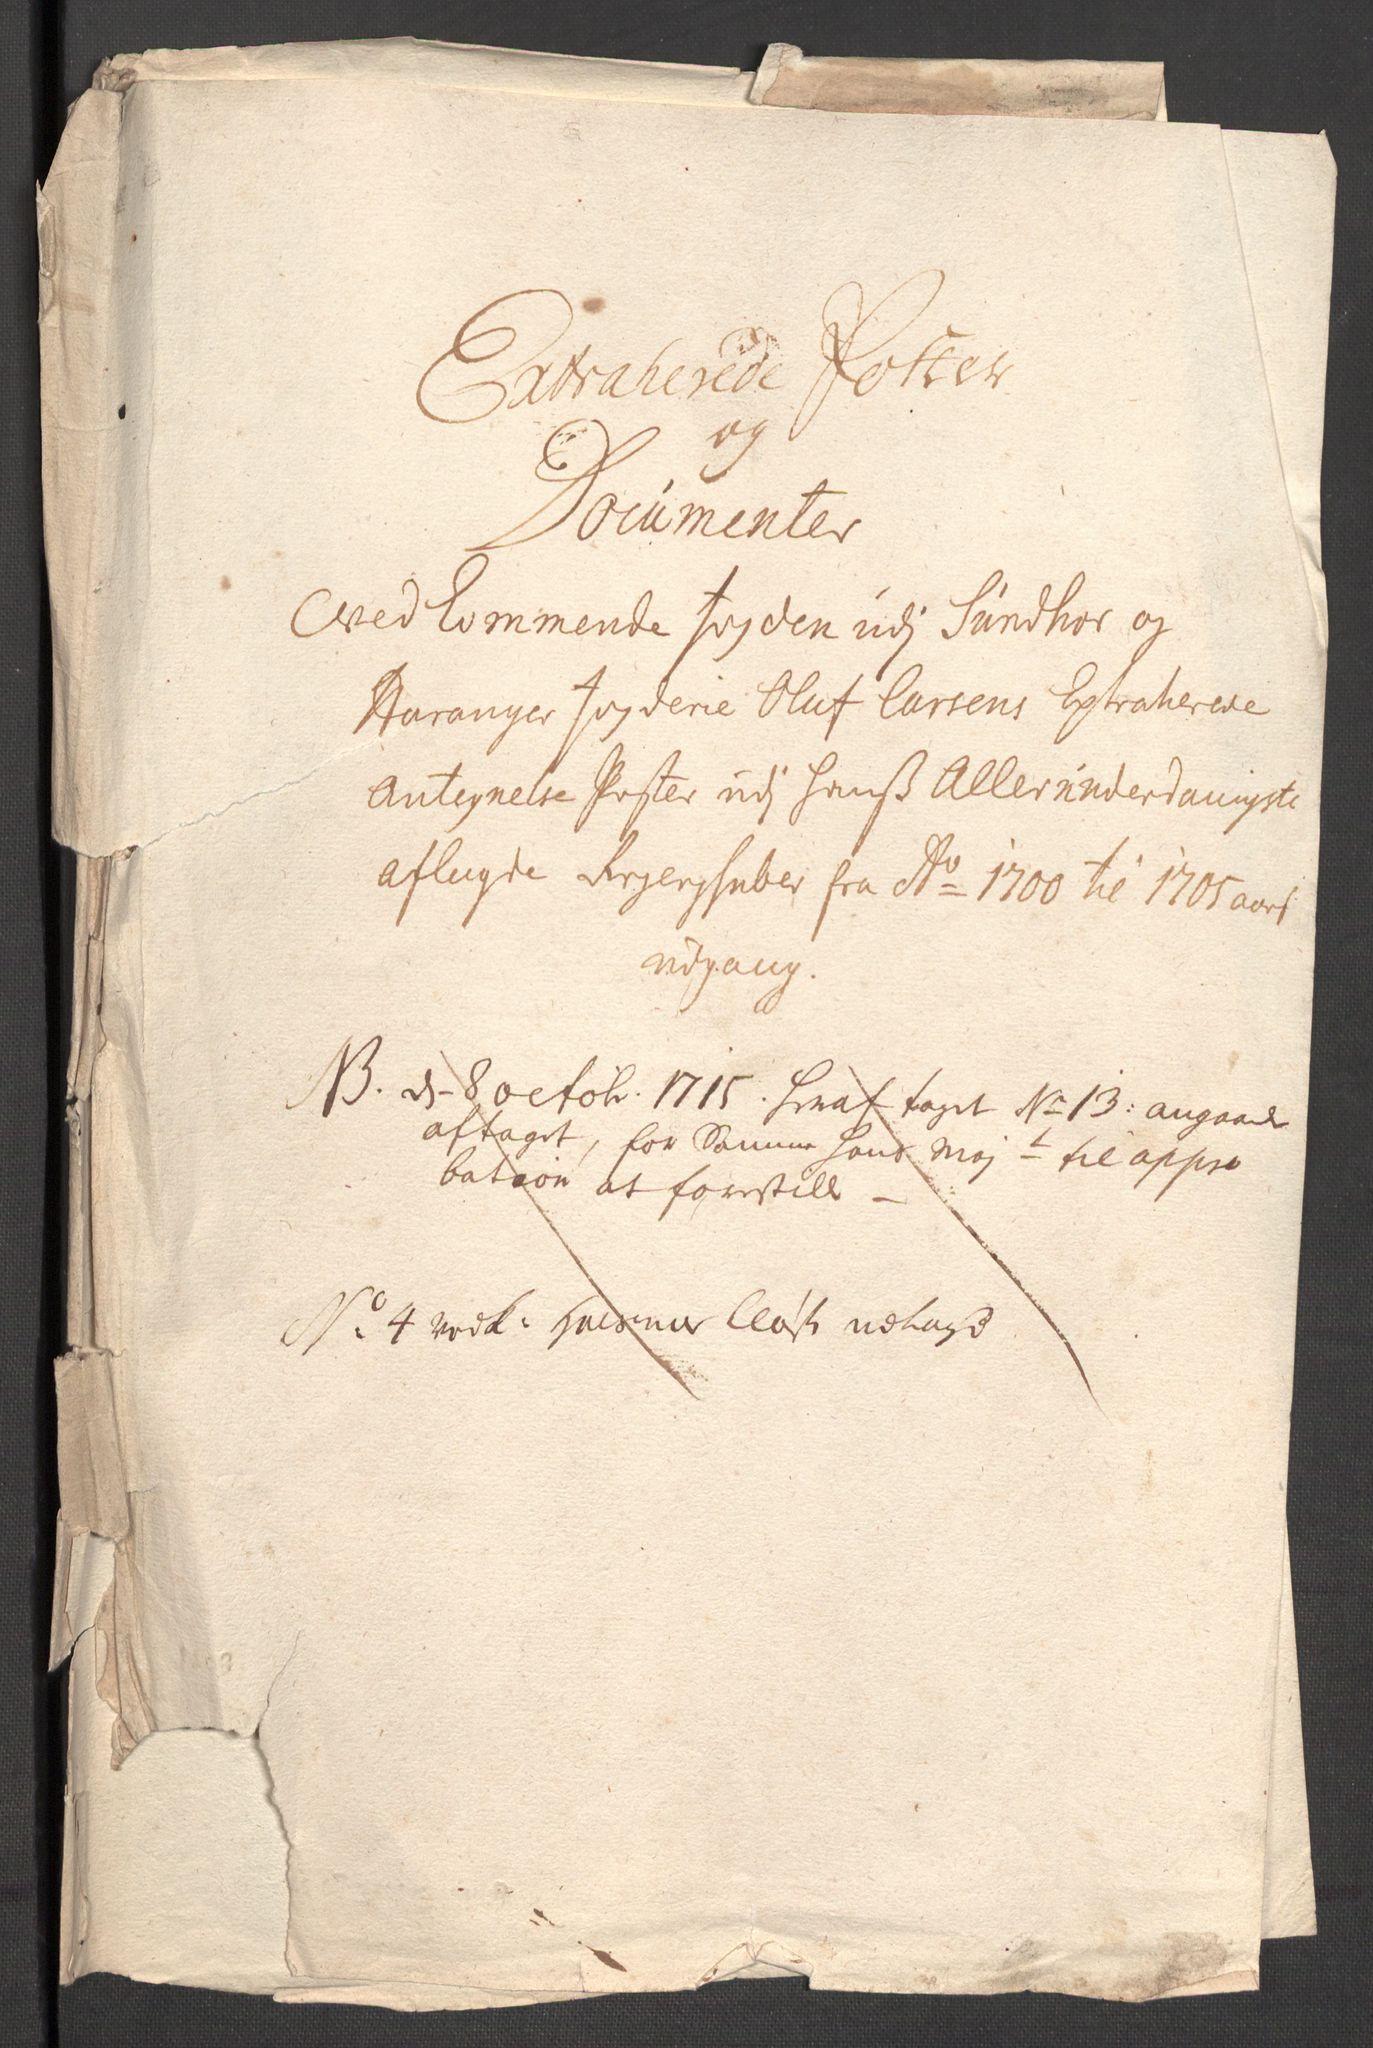 Extraherede Poster
og
Documenter
Wedkommende fogden udj Sundhor og
Haranger fogderie Oluf Larsens Extraherede
Antegnelse Poster udj hanß Allerunderdanigste
aflagde Regensskaber fra Ao 1700 til 1705 aars
udgang.
NB. d. 8 octob. 1715. heraf taget No 13: angaaende
aftaget, for Samme hans Maj:t til appro
bation at forestille -
No. 4 vedk: Halsnøe Closter udtagd